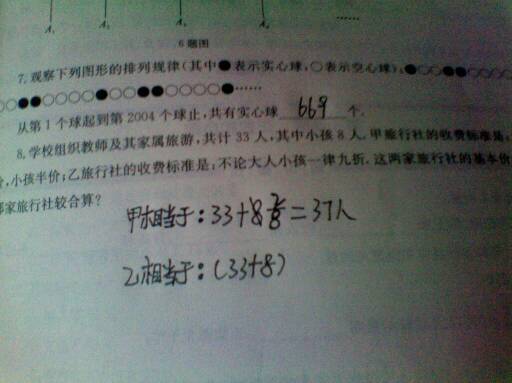 A₁ A₂ A₃ A₄ ……
6题图
7.观察下列图形的排列规律(其中●表示实心球,○表示空心球):●○○●●○○○○
○○●●○○○○●○○●●○○○○●……
从第1个球起到第2004个球止,共有实心球 669 个.
8.学校组织教师及其家属旅游,共计33人,其中小孩8人.甲旅行社的收费标准是:
价,小孩半价;乙旅行社的收费标准是:不论大人小孩一律九折.这两家旅行社的基本价
那家旅行社较合算?
甲相当于:33+8 =37人
乙相当于:(33+8)